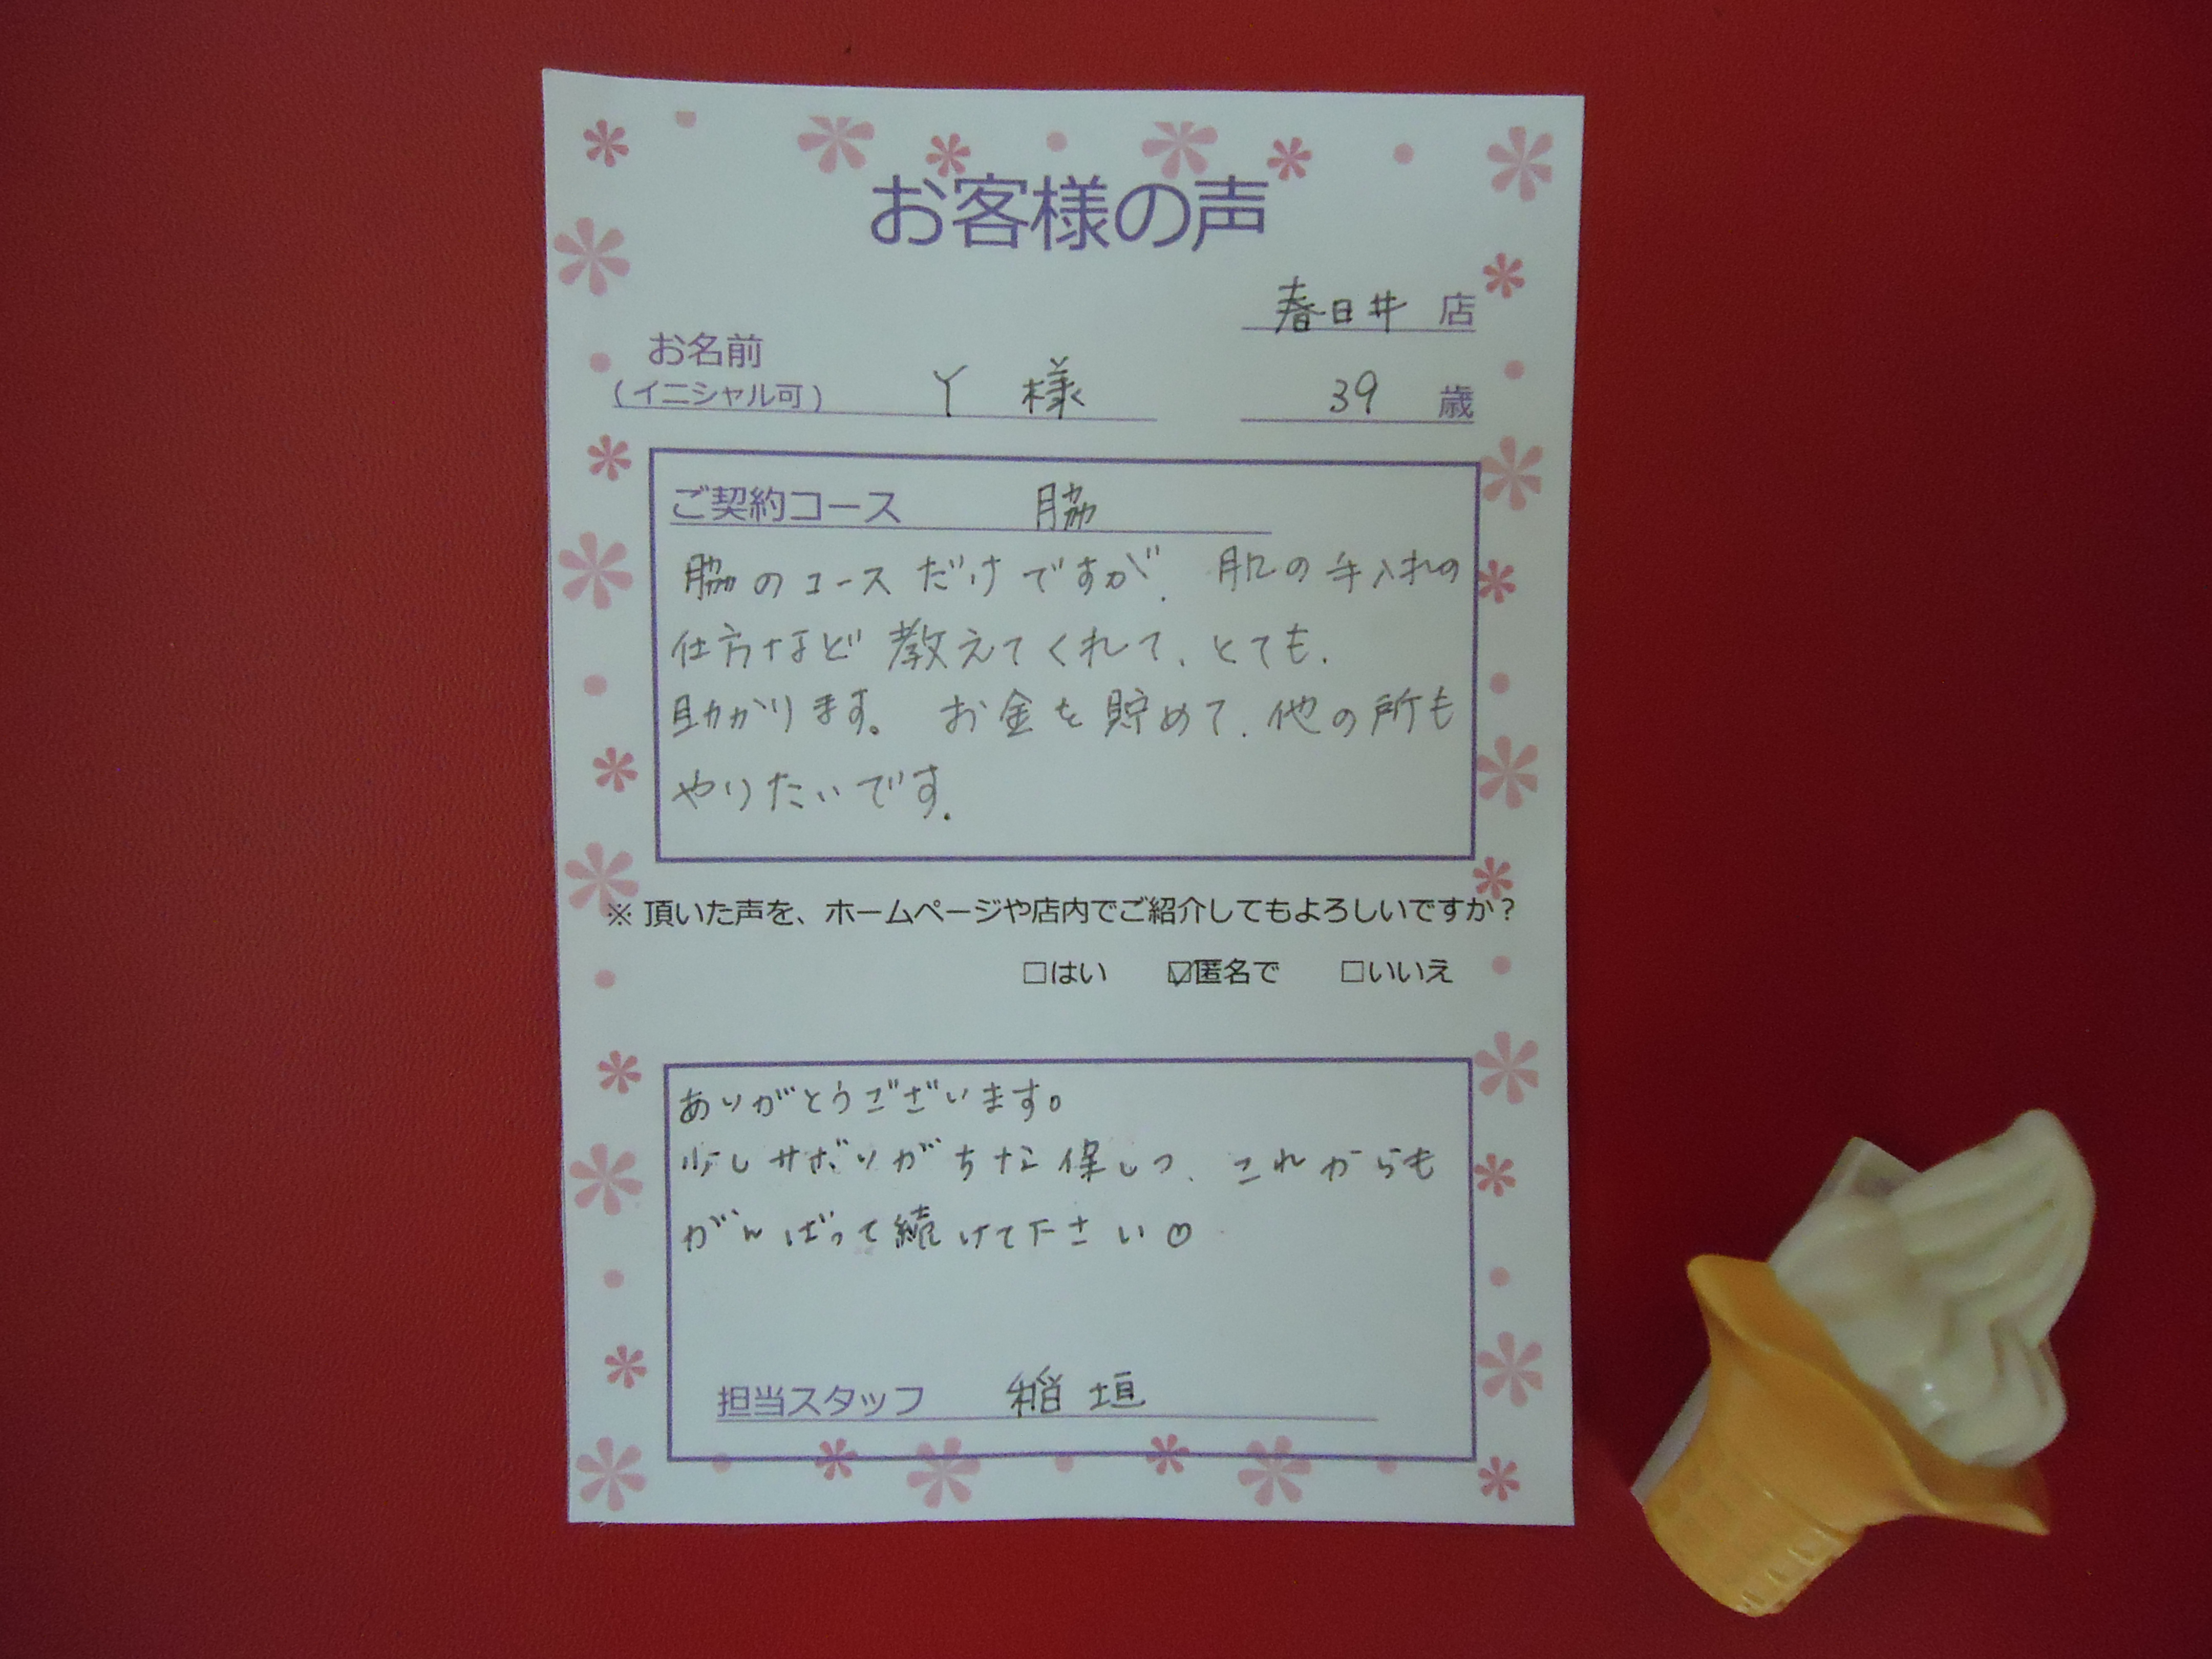 お客様の声
春日井 店
お名前
(イニシャル可) Y 様 39 歳
ご契約コース 脇
脇のコースだけですが、肌の手入れの
仕方など教えてくれて、とても、
助かります。 お金を貯めて、他の所も
やりたいです。
※ 頂いた声を、ホームページや店内でご紹介してもよろしいですか？
□はい ☑匿名で □いいえ
ありがとうございます。
少しサボりがちな保しつ、これからも
がんばって続けて下さい♡
担当スタッフ 稲垣